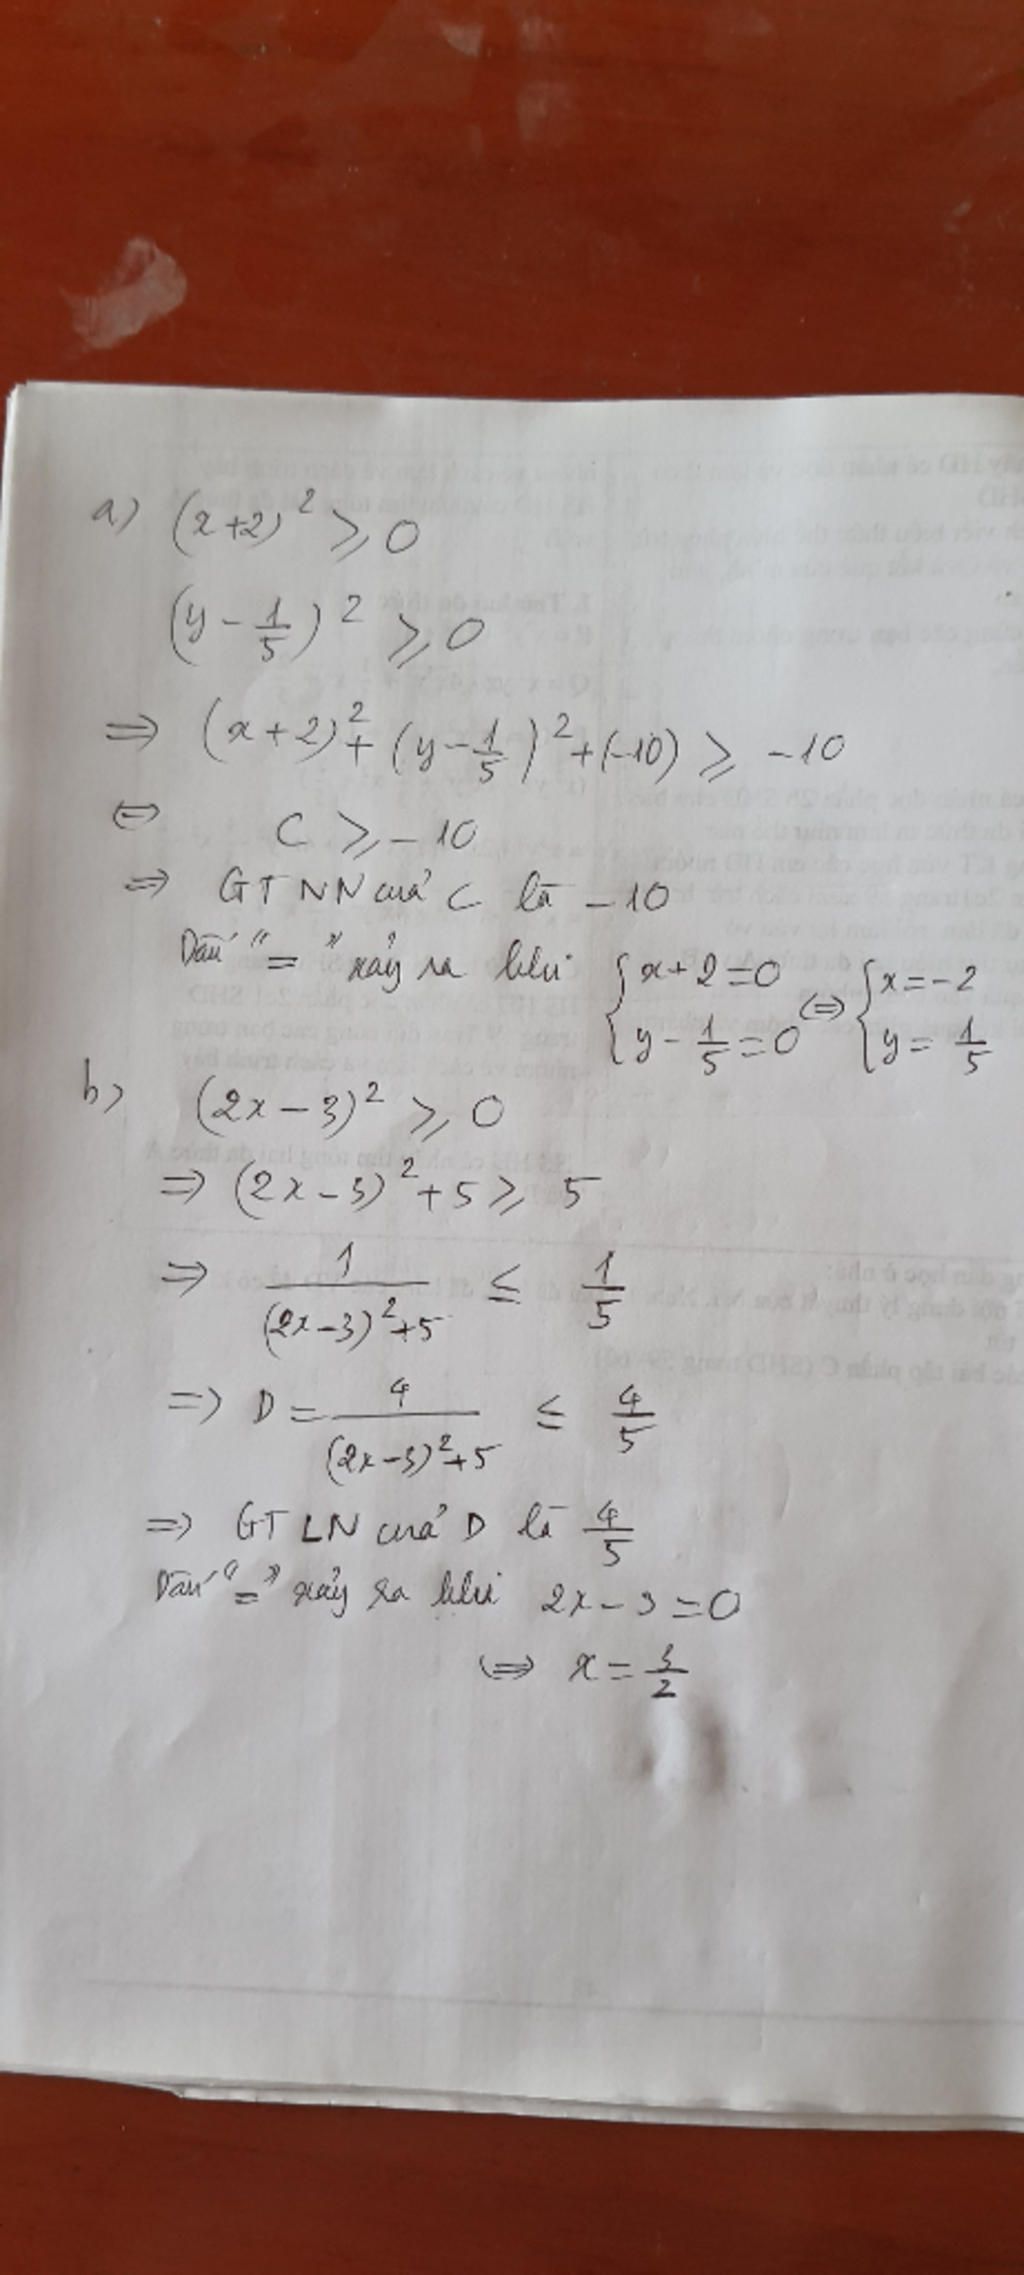 a) (x+2)² ⩾ 0
(y - 1/5)² ⩾ 0
⇒ (x+2)² + (y - 1/5)² + (-10) ⩾ -10
⇔ C ⩾ -10
⇒ GTNN của C là -10
Dấu "=" xảy ra khi {x+2=0 ⇔ {x=-2
{y - 1/5 = 0 {y = 1/5
b) (2x-3)² ⩾ 0
⇒ (2x-3)² + 5 ⩾ 5
⇒ 1/((2x-3)²+5) ≤ 1/5
⇒ D = 4/((2x-3)²+5) ≤ 4/5
⇒ GTLN của D là 4/5
Dấu "=" xảy ra khi 2x-3=0
⇔ x = 3/2